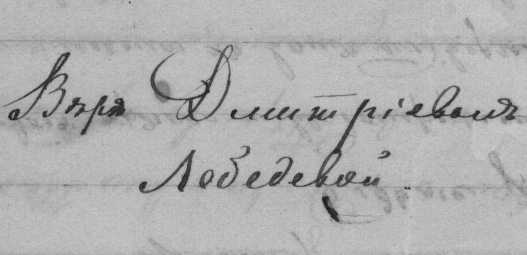 Вѣрѣ Дмитріевнѣ
Лебедевой